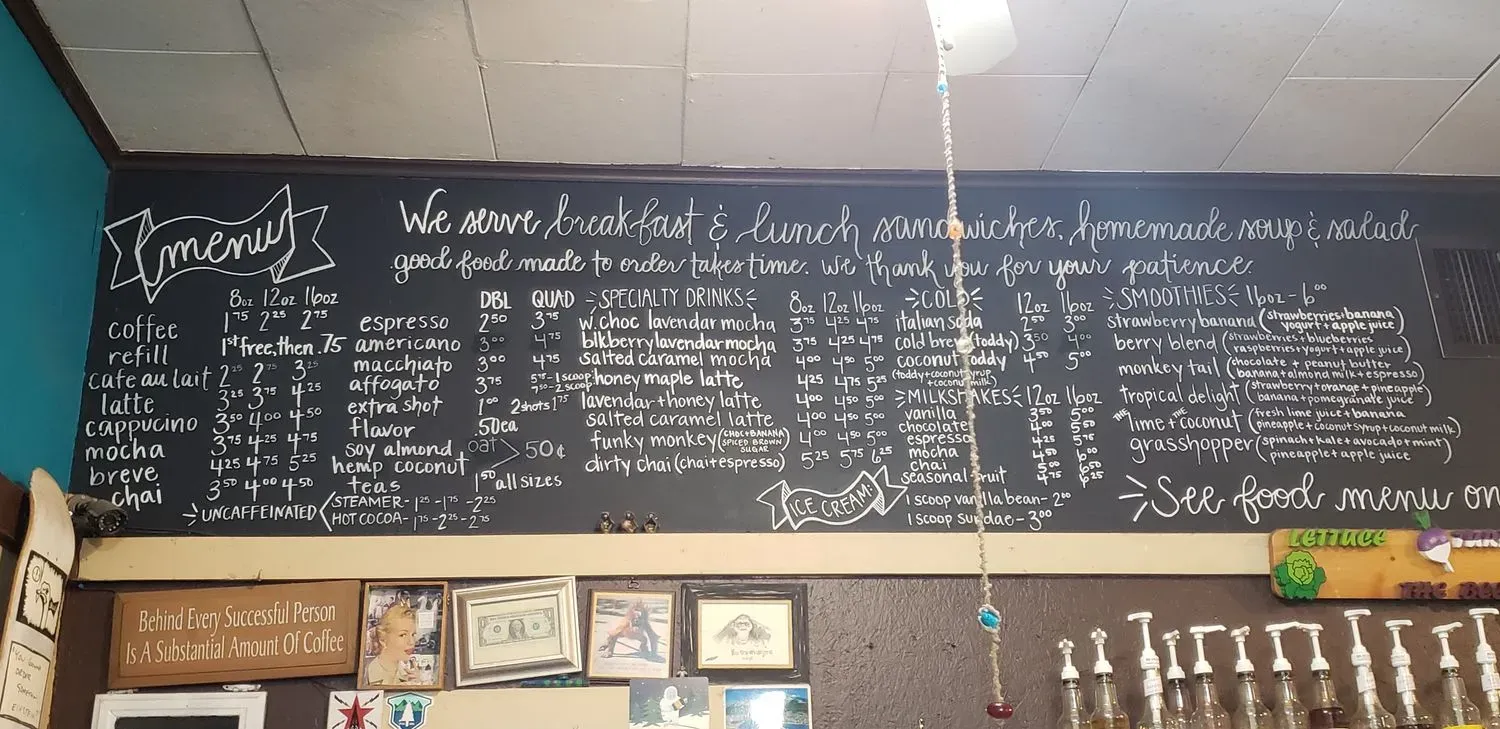 menu
We serve breakfast & lunch sandwiches, homemade soup & salad
good food made to order takes time. we thank you for your patience.
8oz 12oz 16oz
coffee 1 75 2 25 2 75
refill 1st free, then .75
cafe au lait 2 25 2 75 3 25
latte 3 25 3 75 4 25
cappucino 3 50 4 00 4 50
mocha 3 75 4 25 4 75
breve 4 25 4 75 5 25
chai 3 50 4 00 4 50
UNCAFFEINATED
STEAMER - 1 25 - 1 75 - 2 25
HOT COCOA - 1 75 - 2 25 - 2 75
DBL QUAD
espresso 2 50 3 75
americano 3 00 4 75
macchiato 3 00 4 75
affogato 3 75 - 1 scoop
- 2 scoop
extra shot 1 00 2 shots 1 75
flavor .50 ea
soy almond oat
hemp coconut 50¢
teas 1 50 all sizes
SPECIALTY DRINKS 8oz 12oz 16oz
w.choc lavendar mocha 3 75 4 25 4 75
blkberry lavendar mocha 3 75 4 25 4 75
salted caramel mocha 4 00 4 50 5 00
honey maple latte 4 25 4 75 5 25
lavendar + honey latte 4 00 4 50 5 00
salted caramel latte 4 00 4 50 5 00
funky monkey (CHOC+BANANA SPICED BROWN SUGAR) 4 00 4 50 5 00
dirty chai (chai+espresso) 5 25 5 75 6 25
ICE CREAM:
1 scoop vanilla bean - 2 00
1 scoop sundae - 3 00
COLD 12oz 16oz
italian soda 2 50 3 00
cold brew (toddy) 3 50 4 00
coconut toddy 4 50 5 00
(toddy + coconut syrup
+ coconut milk)
MILKSHAKES 12oz 16oz
vanilla 3 50 5 00
chocolate
espresso 4 25 5 75
mocha
chai 5 00 6 50
seasonal fruit 4 75 6 25
SMOOTHIES 16oz - 6 00
strawberry banana (strawberries + banana
yogurt + apple juice)
berry blend (strawberries + blueberries
raspberries + yogurt + apple juice)
monkey tail (chocolate + peanut butter
banana + almond milk + espresso)
tropical delight (strawberry + orange + pineapple
banana + pomegranate juice)
THE lime THE + coconut (fresh lime juice + banana
pineapple + coconut syrup + coconut milk)
grasshopper (spinach + kale + avocado + mint
pineapple + apple juice)
See food menu on
LETTUCE
THE
Behind Every Successful Person
Is A Substantial Amount Of Coffee